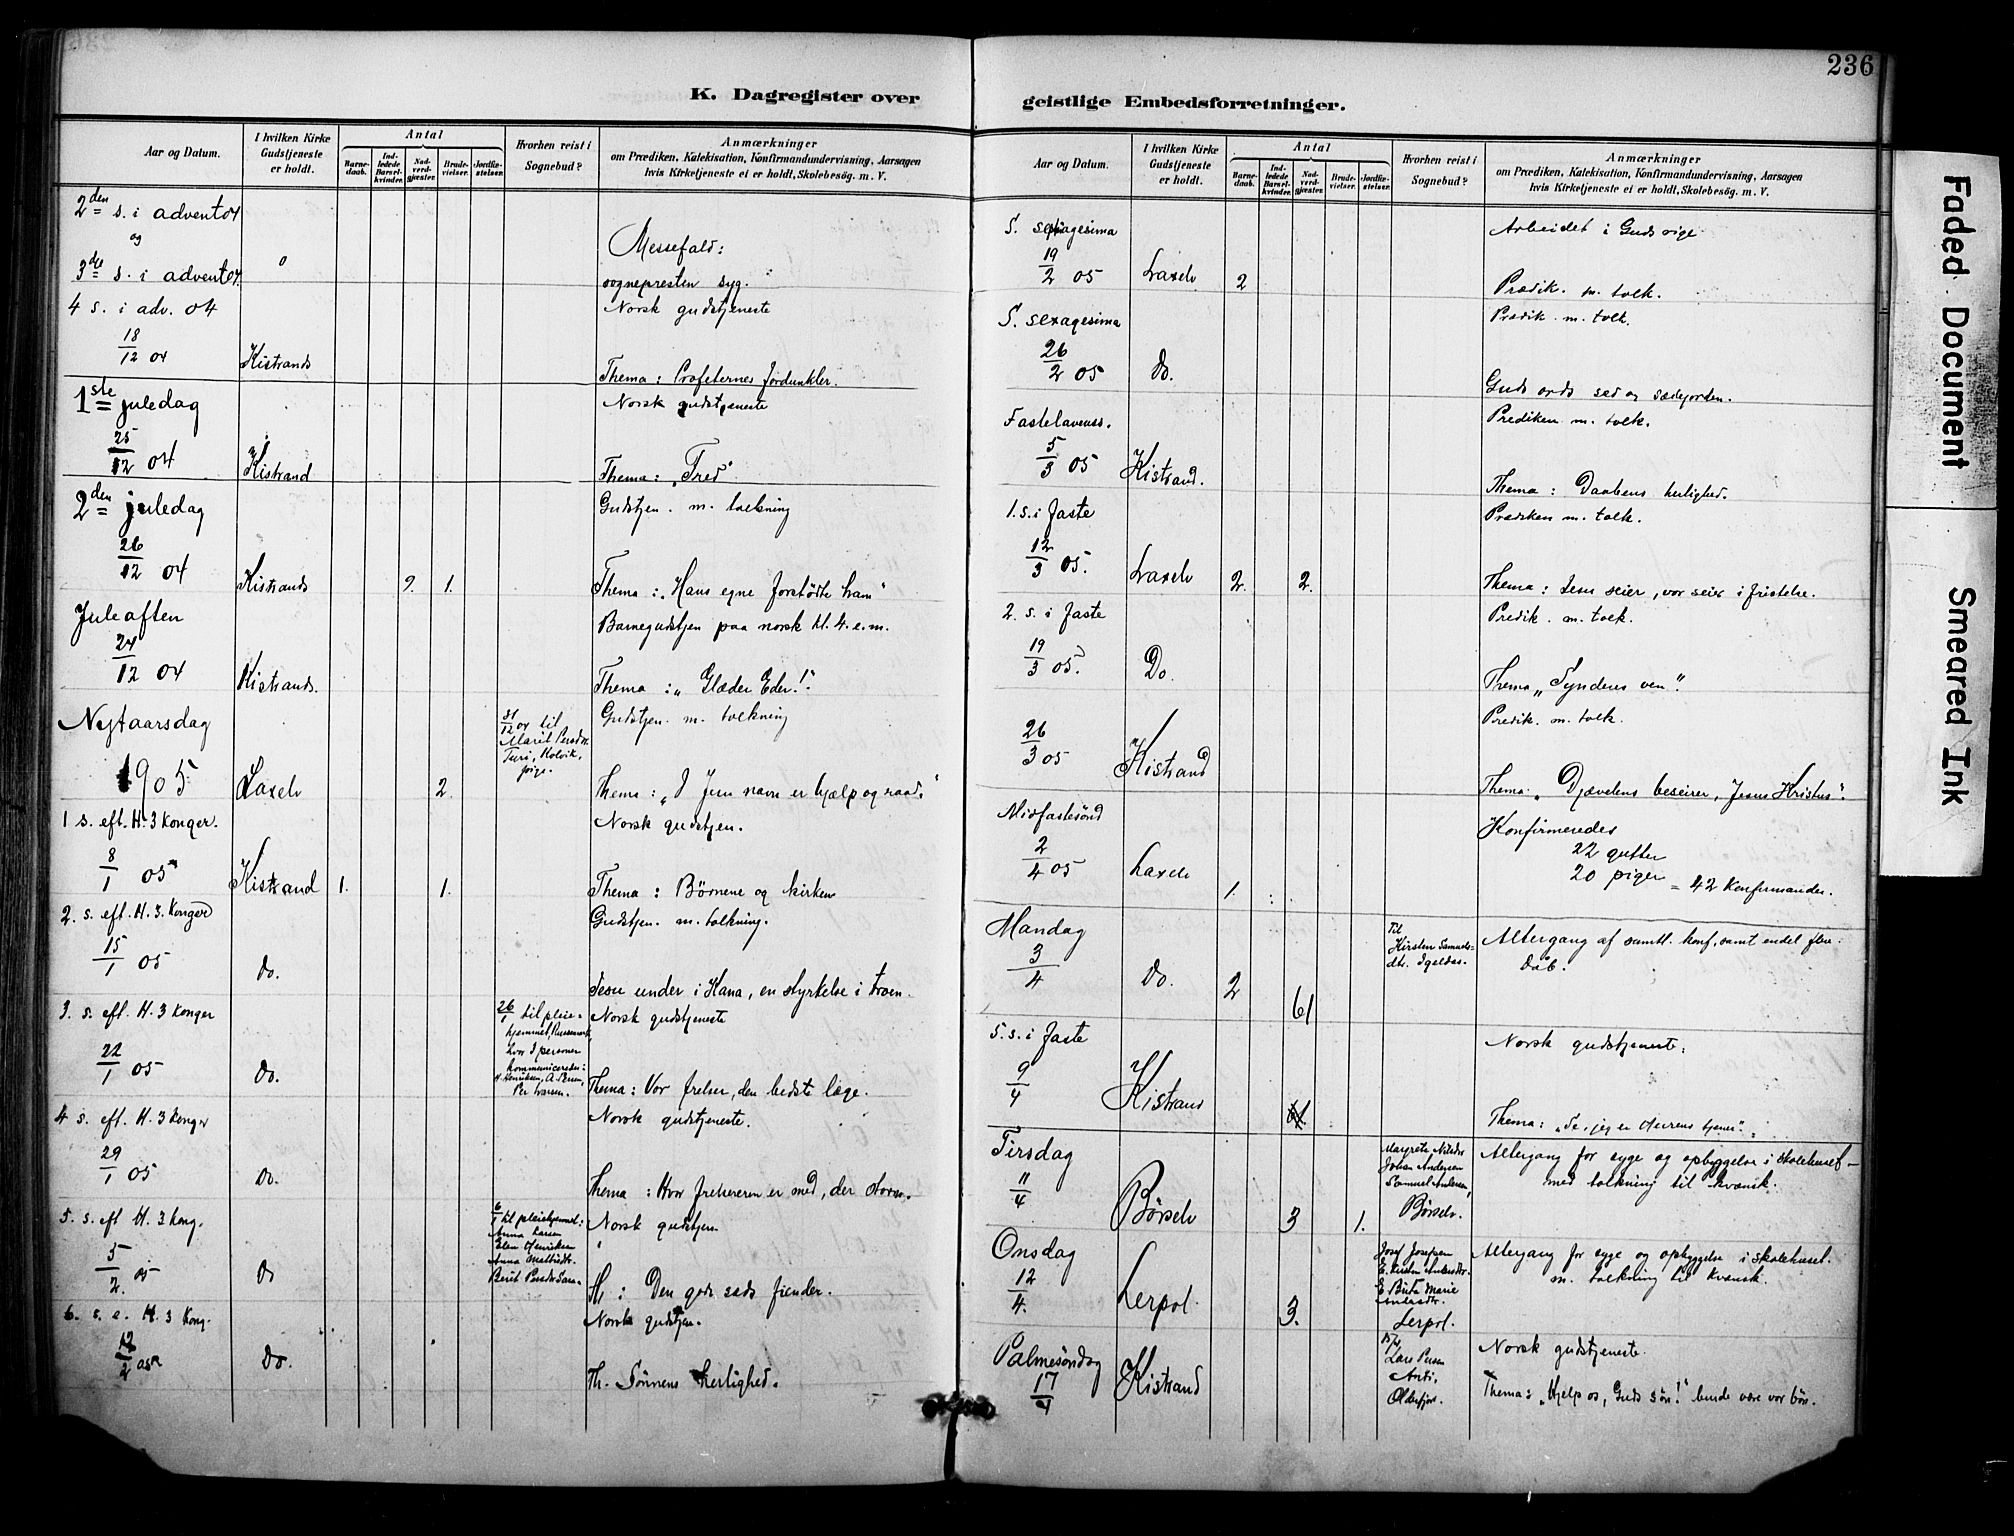 236
K. Dagregister over
geistlige Embedsforretninger.
Aar og Datum.
I hvilken Kirke
Gudstjeneste
er holdt.
Antal
Barne-
daab.
Ind-
ledede
Barsel-
kvinder.
Nad-
verd-
gjæster.
Brude-
vielser.
Jordfæ-
stelser.
Hvorhen reist i
Sognebud?
Anmærkninger
om Prædiken, Katekisation, Konfirmandundervisning, Aarsagen
hvis Kirketjeneste ei er holdt, Skolebesøg. m. V.
2den s. i advent 04
og
3de s. i advent 04.
0
Messefald:
sognepresten syg.
4 s. i adv. 04
18/12 04
Kistrand
Norsk gudstjeneste
Thema: Profeternes fordunkler.
1ste juledag
25/12 04
Kistrand
Norsk gudstjeneste
Thema: "Fred"
2den juledag
26/12 04
Kistrand
9. 1.
Gudstjen. m. tolkning
Thema: "Hans egne forstødte ham"
Juleaften
24/12 04
Kistrand.
Barnegudstjen paa norsk kl. 4. e. m.
Thema: "Glæder Eder!"
Nytaarsdag
1905
Laxelv
2.
31/12 04 til
Marit Persdr.
Turi, Kolvik,
pige.
Gudstjen. m. tolkning
Thema: "I Jesu navn er hjælp og raad."
1 s. eft. H. 3 Konger.
8/1 05
Kistrand
1. 1.
Norsk gudstjen.
Thema: Børnene og kirken
2. s. eft. H. 3. Konger
15/1 05
Do.
Gudstjen. m. tolkning.
Jesu under i Kana, en styrkelse i troen.
3. s. eft. H. 3 Konger
22/1 05
Do.
26/1 til pleie-
hjemmet,
hvor 3 personer
kommunicerede:
H. Henriksen, A. Persen,
Per Larsen.
Norsk gudstjeneste
Thema: Vor frelser, den bedste læge.
4 s. eft. H. 3 Konger
29/1 05
Do.
Norsk gudstjeneste.
Thema: Hvor frelseren er med, der storm.
5. s. eft H. 3 Kong.
5/2. 05
Do
til pleiehjemmet:
Anna Larsen
Elen Henriksen
Berit Persdr Sara.
Norsk gudstjen.
Th: Den gode sæds fiender.
6. s. e. H. 3 Kong.
12/2 05
Do.
Norsk gudstjen.
Th. Sønnens herlighed.
Aar og Datum.
I hvilken Kirke
Gudstjeneste
er holdt.
Antal
Barne-
daab.
Ind-
ledede
Barsel-
kvinder.
Nad-
verd-
gjæster.
Brude-
vielser.
Jordfæ-
stelser.
Hvorhen reist i
Sognebud?
Anmærkninger
om Prædiken, Katekisation, Konfirmandundervisning, Aarsagen
hvis Kirketjeneste ei er holdt, Skolebesøg. m. V.
S. septuagesima
19/2 05
Laxelv
2
Arbeidet i Guds rige
Prædik. m. tolk.
S. sexagesima
26/2 05
Do.
Prædik. m. tolk.
Guds ords sæd og sædejorden.
Fastelavenss.
5/3 05
Kistrand.
Prediken m. tolk.
Thema: Daabens herlighed.
1. s. i faste
12/3 05.
Laxelv
2. 2.
Prædiken m. tolk.
Thema: Jesu seier, vor seier i fristelse.
2. s. i faste
19/3 05.
Do.
Predik. m. tolk.
Thema "Synderes ven".
26/3 05
Kistrand
Predik. m. tolk.
Thema. "Djævelens beseirer, Jesus Kristus".
Midfastesønd
2/4 05
Laxelv
1.
Konfirmeredes
22 gutter
20 piger
= 42 Konfirmander.
Mandag
3/4
Do.
2
61
Til
Kirsten Samuels-
dtr. Igeldas.
Altergang af samtl. konf., samt endel flere.
Daab.
5. s. i faste
9/4
Kistrand
Norsk gudstjeneste.
Thema: "Se, jeg er Herrens tjener".
Tirsdag
11/4
Børselv
3 1.
Margrete Nilsdr
Johan Andersen
Samuel Andersen,
Børselv.
Altergang for syge og opbyggelse i skolehuset –
med tolkning til kvænsk.
Onsdag
12/4.
Lerpol.
3.
Josef Josefsen
E. Kirsten Andersdtr.
E Brita Marie
Andersdtr.
Lerpol.
Altergang for syge og opbyggelse i skolehuset.
m. tolkning til kvænsk.
Palmesøndag
17/4
Kistrand
Lars Persen
Anti,
Olderfjor.
Norsk gudstjeneste.
Thema: "Hjelp os, Guds søn!" burde være vor bøn.
Faded Document
Smeared Ink